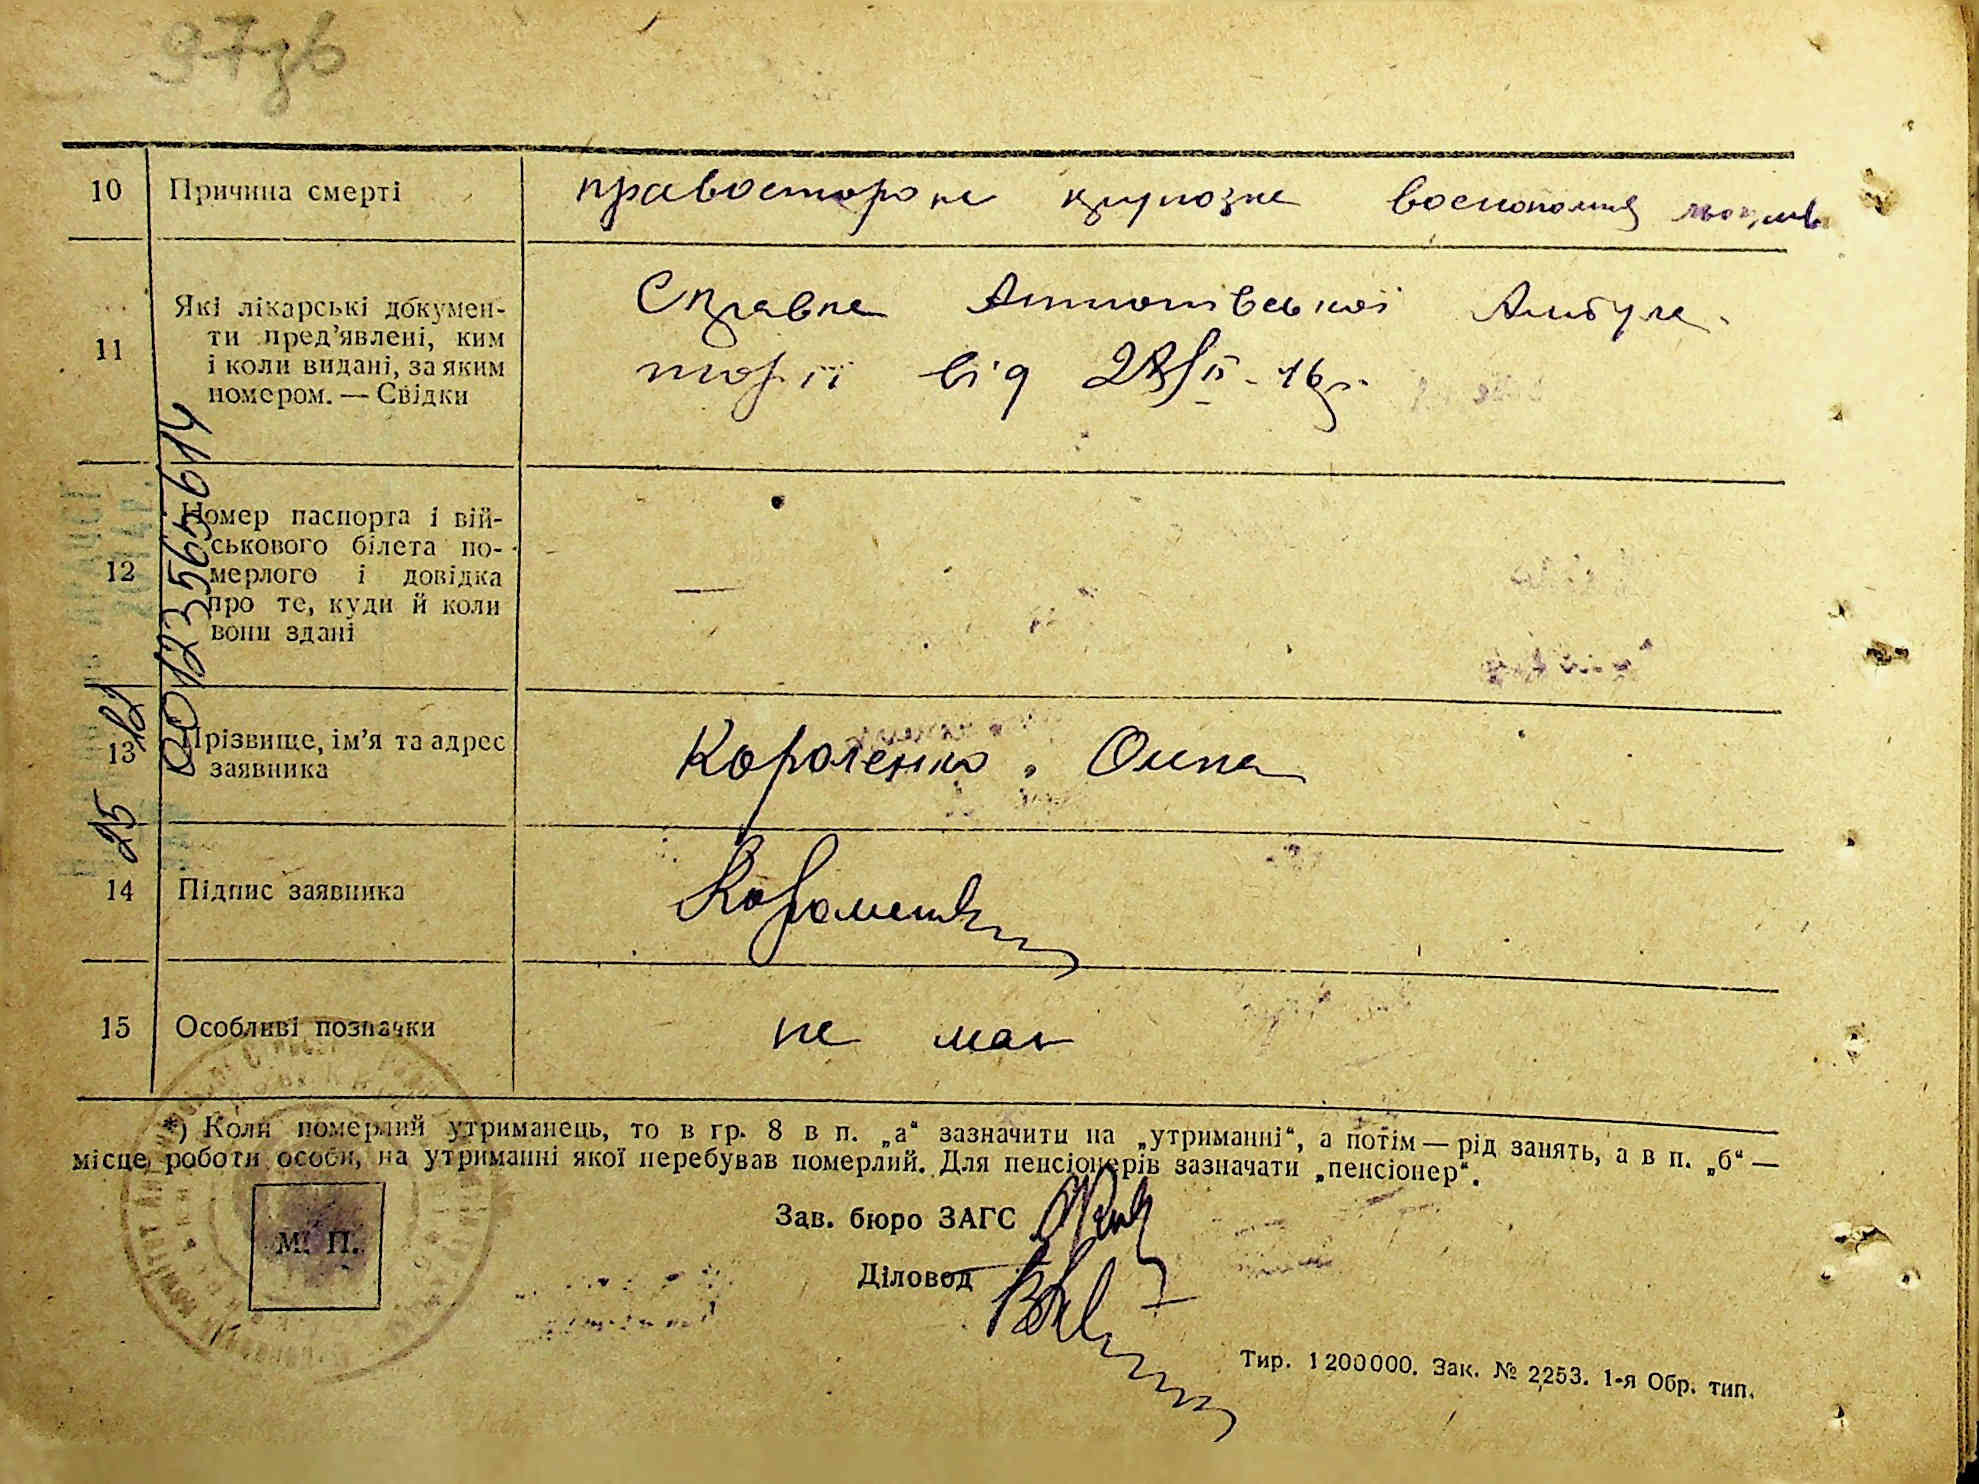 97зв
10 Причина смерті правостороне крупозне воспопомия
11 Які лікарські докумен-
ти пред’явлені, ким
і коли видані, за яким
номером. — Свідки
Справка Амбула-
торії від
12 Номер паспорта і вій-
ськового білета по-
мерлого і довідка
про те, куди й коли
вони здані
—
13 Прізвище, ім’я та адрес
заявника
Короленко
14 Підпис заявника
15 Особливі позначки не має
*) Коли померлий утриманець, то в гр. 8 в п. „а“ зазначити на „утриманні“, а потім — рід занять, а в п. „б“ —
місце роботи особи, на утриманні якої перебував померлий. Для пенсіонерів зазначати „пенсіонер“.
Зав. бюро ЗАГС
М. П.
Діловод
Тир. 1 200 000. Зак. № 2253. 1-я Обр. тип.